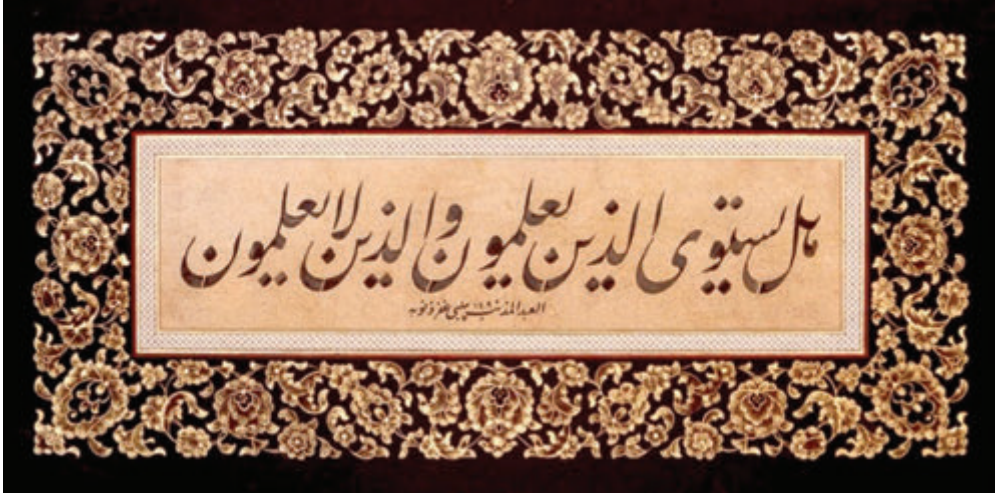 هل يستوى الذين يعلمون والذين لا يعلمون
العبد المذنب غفر ذنوبه